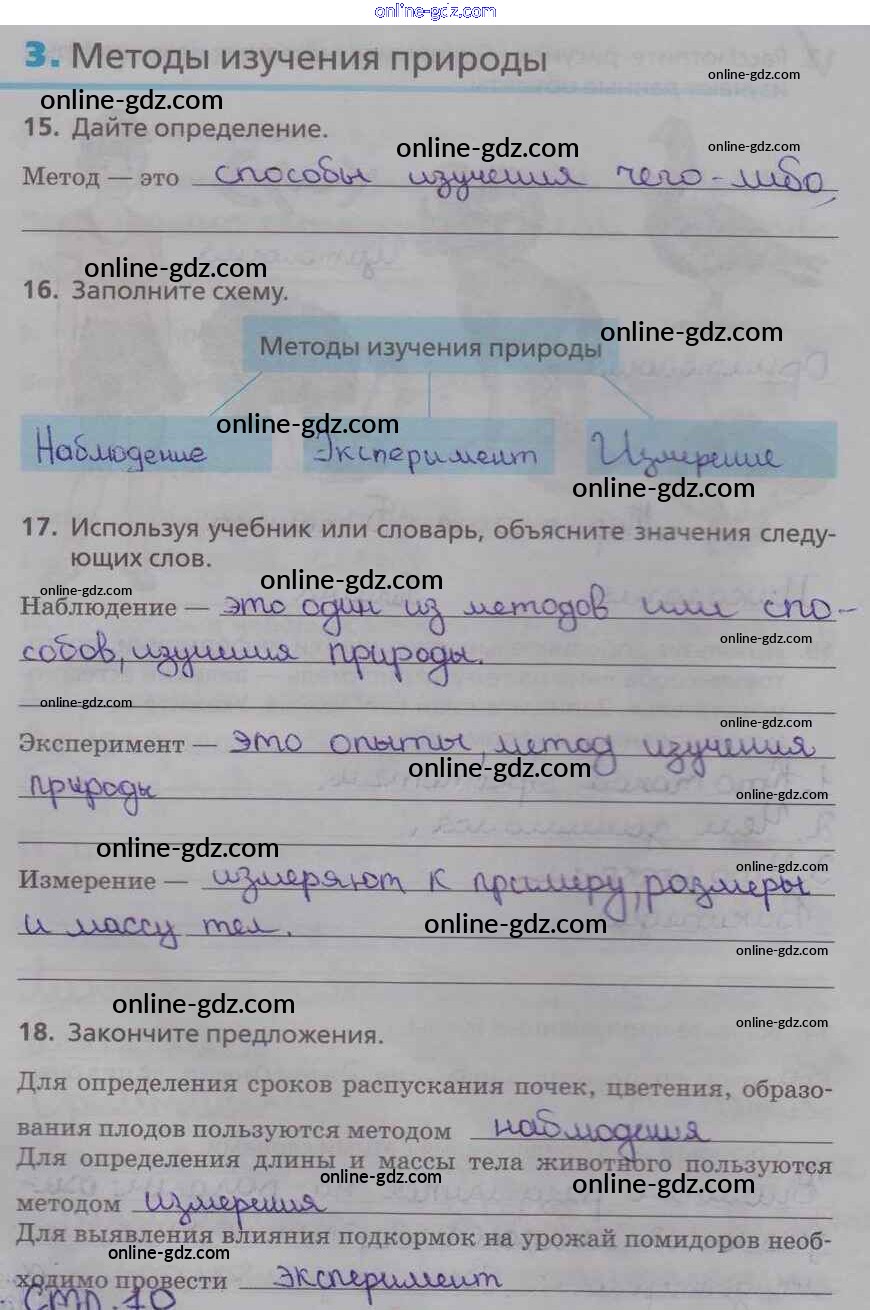 online-gdz.com
3. Методы изучения природы
online-gdz.com
online-gdz.com
15. Дайте определение.
online-gdz.com
online-gdz.com
Метод — это способы изучения чего-либо
online-gdz.com
16. Заполните схему.
online-gdz.com
Методы изучения природы
online-gdz.com
Наблюдение Эксперимент Измерение
online-gdz.com
17. Используя учебник или словарь, объясните значения следу-
ющих слов.
online-gdz.com
online-gdz.com
Наблюдение — это один из методов или спо-
online-gdz.com
собов, изучения природы.
online-gdz.com
online-gdz.com
Эксперимент — это опыты, метод изучения
online-gdz.com
природы
online-gdz.com
online-gdz.com
online-gdz.com
Измерение — измеряют к примеру, размеры
и массу тел.
online-gdz.com
online-gdz.com
online-gdz.com
online-gdz.com
18. Закончите предложения.
Для определения сроков распускания почек, цветения, образо-
вания плодов пользуются методом наблюдения
Для определения длины и массы тела животного пользуются
online-gdz.com
online-gdz.com
методом измерения
Для выявления влияния подкормок на урожай помидоров необ-
online-gdz.com
ходимо провести эксперимент
стр. 10